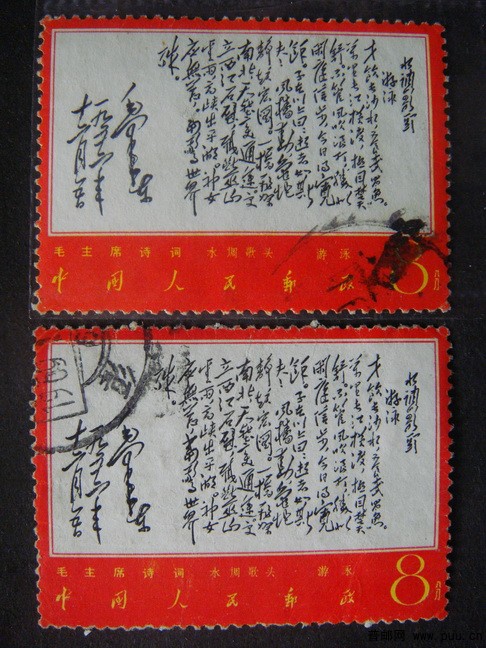 水调歌头
游泳
才饮长沙水又食武昌鱼
万里长江横渡极目楚天
舒不管风吹浪打胜似
闲庭信步今日得宽
馀子在川上曰逝者如斯
夫风樯动龟蛇
静起宏图一桥飞架
南北天堑变通途更
立西江石壁截断巫山
云雨高峡出平湖神女
应无恙当惊世界
殊
毛泽东
一九五六年
十二月五日
毛主席诗词 水调歌头 游泳
中国人民郵政 8分
水调歌头
游泳
才饮长沙水又食武昌鱼
万里长江横渡极目楚天
舒不管风吹浪打胜似
闲庭信步今日得宽
馀子在川上曰逝者如斯
夫风樯动龟蛇
静起宏图一桥飞架
南北天堑变通途更
立西江石壁截断巫山
云雨高峡出平湖神女
应无恙当惊世界
殊
毛泽东
一九五六年
十二月五日
毛主席诗词 水调歌头 游泳
中国人民郵政 8分
www.puu.cn